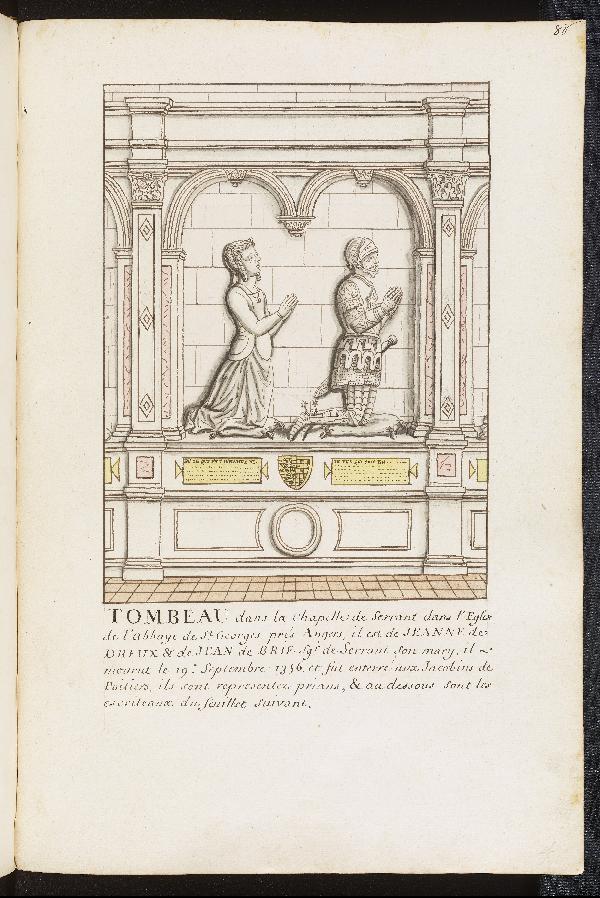 86
TOMBEAU dans la Chapelle de Serrant dans l'Eglise
de l'Abbaye de St. Georges prés Angers, il est de JEANNE de
DREUX & de JEAN de BRIE Sgr. de Serrant son mary, il
mourut le 19e. Septembre 1356. et fut enterré aux Jacobins de
Poitiers, ils sont representez prians, & au dessous sont les
escriteaux du feuillet suivant.